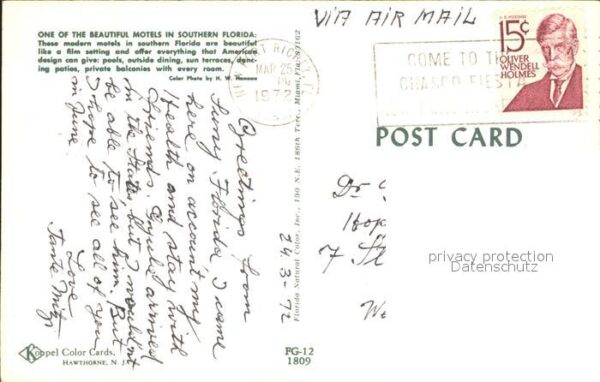 ONE OF THE BEAUTIFUL MOTELS IN SOUTHERN FLORIDA:
These modern motels in southern Florida are beautiful
like a film setting and offer everything that American
design can give: pools, outside dining, sun terraces, danc-
ing patios, private balconies with every room.
Color Photo by H. W. Hannau
VIA AIR MAIL
MAR 25
PM
1972
COME TO THE
CHASCO FIESTA
U.S. POSTAGE
15¢
OLIVER
WENDELL
HOLMES
POST CARD
Greetings from
Sunny Florida. I came
here on account my
Health and stay with
friends. Gyula arrived
in the States but I wouldn't
be able to see him. But
I hope to see all of you
in June
Love
Tante Mitzi
24.3-72
Florida Natural Color, Inc., 190 N.E. 186th Terr., Miami, Fla.
Dr
7
privacy protection
Datenschutz
Koppel Color Cards,
HAWTHORNE, N. J.
FG-12
1809